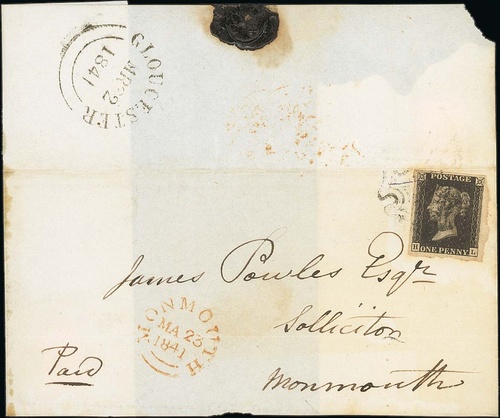 GLOUCESTER
MR 22
1841
POSTAGE
ONE PENNY
H L
James Powles Esqr
Sollicitor
Monmouth
Paid
MONMOUTH
MA 23
1841